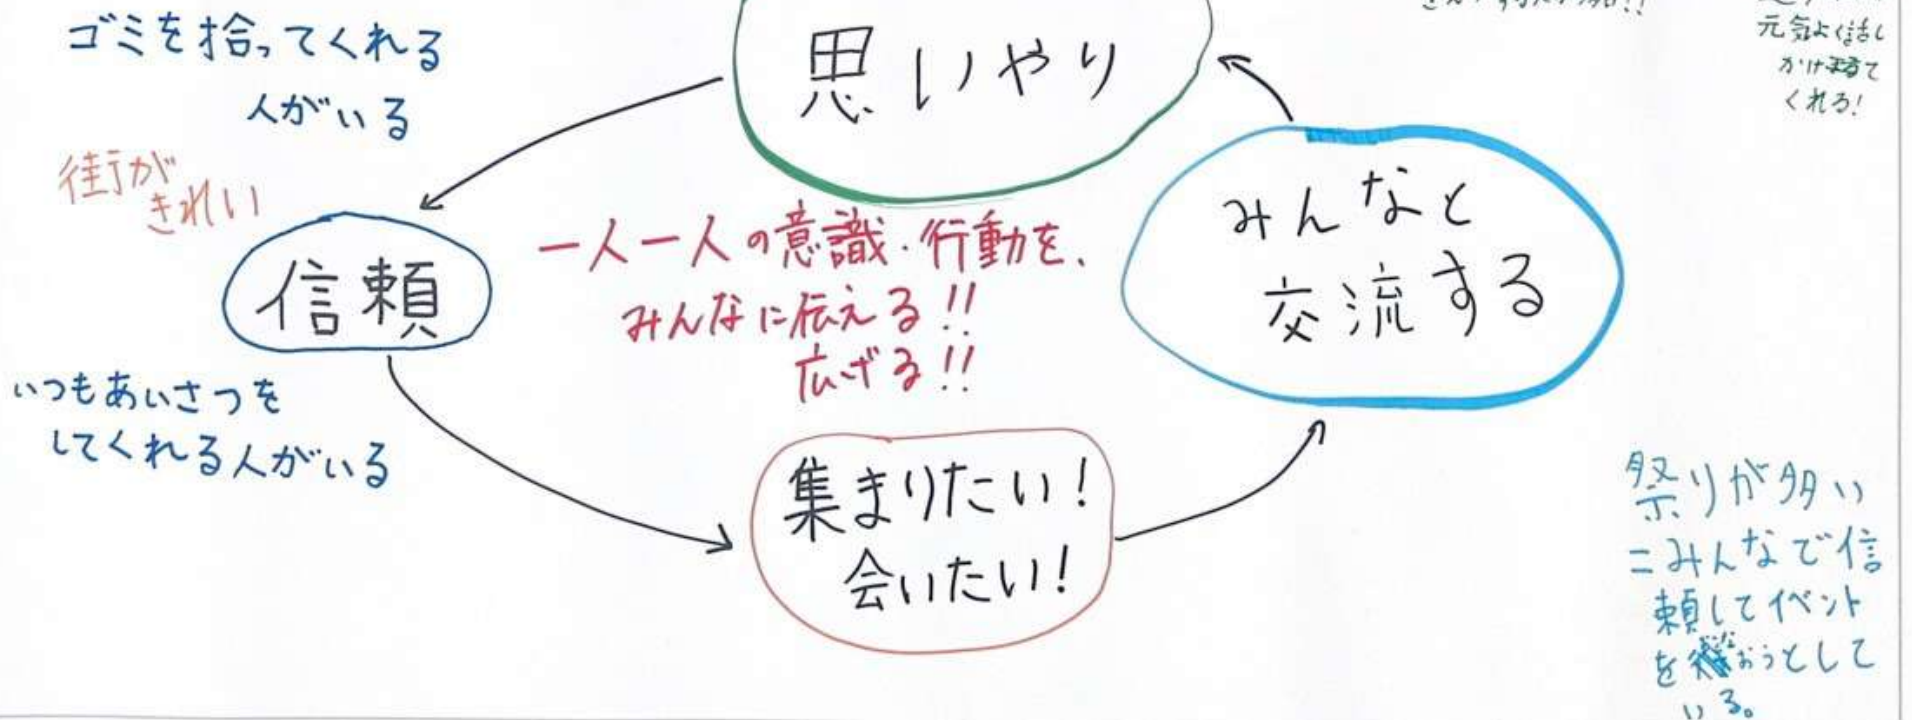 ゴミを拾ってくれる
人がいる
街が
きれい
思いやり
元気よく話し
かけて
くれる!
信頼
一人一人の意識・行動を、
みんなに伝える!!
広げる!!
みんなと
交流する
いつもあいさつを
してくれる人がいる
集まりたい!
会いたい!
祭りが多い
=みんなで信
頼してイベント
を おうとして
いる。